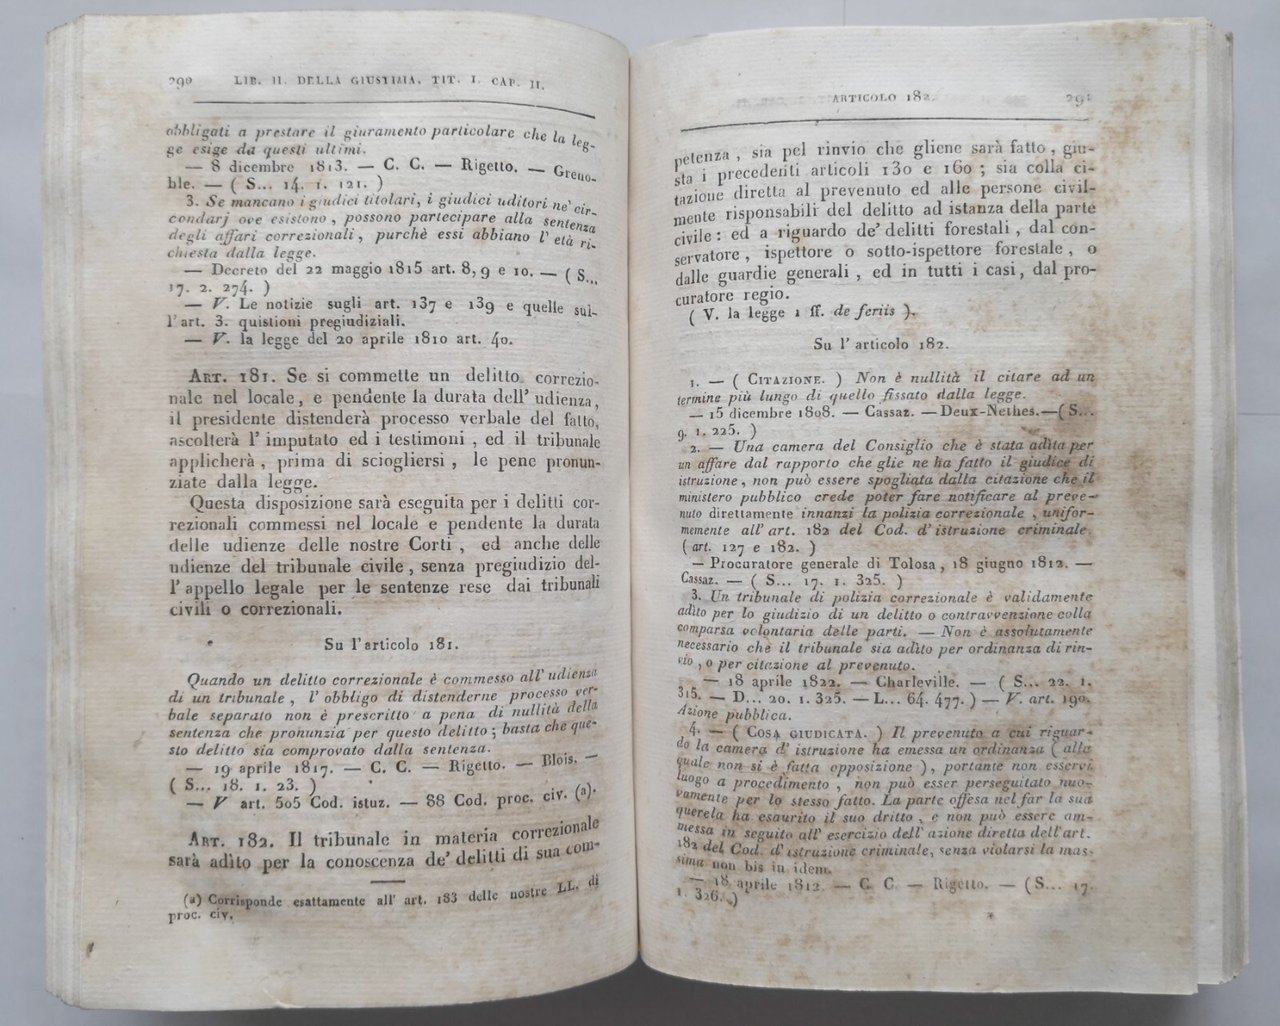 290 LIB. II. DELLA GIUSTIZIA. TIT. I. CAP. II.
obbligati a prestare il giuramento particolare che la leg-
ge esige da questi ultimi.
— 8 dicembre 1813. — C. C. — Rigetto. — Greno-
ble. — ( S... 14. 1. 121. )
3. Se mancano i giudici titolari, i giudici uditori ne' cir-
condarj ove esistono, possono partecipare alla sentenza
degli affari correzionali, purchè essi abbiano l' età ri-
chiesta dalla legge.
— Decreto del 22 maggio 1815 art. 8, 9 e 10. — ( S...
17. 2. 274. )
— V. Le notizie sugli art. 137 e 139 e quelle sul-
l'art. 3. quistioni pregiudiziali.
— V. la legge del 20 aprile 1810 art. 40.
ART. 181. Se si commette un delitto correzio-
nale nel locale, e pendente la durata dell' udienza,
il presidente distenderà processo verbale del fatto,
ascolterà l' imputato ed i testimoni, ed il tribunale
applicherà, prima di sciogliersi, le pene pronun-
ziate dalla legge.
Questa disposizione sarà eseguita per i delitti cor-
rezionali commessi nel locale e pendente la durata
delle udienze delle nostre Corti, ed anche delle
udienze del tribunale civile, senza pregiudizio del-
l' appello legale per le sentenze rese dai tribunali
civili o correzionali.
Su l'articolo 181.
Quando un delitto correzionale è commesso all' udienza
di un tribunale, l' obbligo di distenderne processo ver-
bale separato non è prescritto a pena di nullità della
sentenza che pronunzia per questo delitto; basta che que-
sto delitto sia comprovato dalla sentenza.
— 19 aprile 1817. — C. C. — Rigetto. — Blois. —
( S... 18. 1. 23. )
— V art. 505 Cod. istuz. — 88 Cod. proc. civ. (a).
ART. 182. Il tribunale in materia correzionale
sarà adìto per la conoscenza de' delitti di sua com-
(a) Corrisponde esattamente all' art. 183 delle nostre LL. di
proc. civ.
ARTICOLO 182. 291
petenza, sia pel rinvio che gliene sarà fatto, giu-
sta i precedenti articoli 130 e 160; sia colla ci-
tazione diretta al prevenuto ed alle persone civil-
mente risponsabili del delitto ad istanza della parte
civile: ed a riguardo de' delitti forestali, dal con-
servatore, ispettore o sotto-ispettore forestale, o
dalle guardie generali, ed in tutti i casi, dal pro-
curatore regio.
( V. la legge 1 ff. de feriis ).
Su l' articolo 182.
1. — ( CITAZIONE. ) Non è nullità il citare ad un
termine più lungo di quello fissato dalla legge.
— 15 dicembre 1808. — Cassaz. — Deux-Nethes. — ( S...
9. 1. 225. )
2. — Una camera del Consiglio che è stata adìta per
un affare dal rapporto che glie ne ha fatto il giudice di
istruzione, non può essere spogliata dalla citazione che il
ministero pubblico crede poter fare notificare al preve-
nuto direttamente innanzi la polizia correzionale, unifor-
memente all' art. 182 del Cod. d' istruzione criminale.
( art. 127 e 182. )
— Procuratore generale di Tolosa, 18 giugno 1812. —
Cassaz. — ( S... 17. 1. 325. )
3. Un tribunale di polizia correzionale è validamente
adìto per lo giudizio di un delitto o contravvenzione colla
comparsa volontaria delle parti. — Non è assolutamente
necessario che il tribunale sia adìto per ordinanza di rin-
vio, o per citazione al prevenuto.
— 18 aprile 1822. — Charleville. — ( S... 22. 1.
315. — D... 20. 1. 325. — L... 64. 477. ) — V. art. 190.
Azione pubblica.
4. — ( COSA GIUDICATA. ) Il prevenuto a cui riguar-
do la camera d' istruzione ha emessa un ordinanza ( alla
quale non si è fatta opposizione ), portante non esservi
luogo a procedimento, non può esser perseguitato nuo-
vamente per lo stesso fatto. La parte offesa nel far la sua
querela ha esaurito il suo dritto, e non può essere am-
messa in seguito all' esercizio dell' azione diretta dell'art.
182 del Cod. d' istruzione criminale, senza violarsi la mas-
sima non bis in idem.
— 18 aprile 1812. — C. C. — Rigetto. — ( S... 17.
1. 326. )